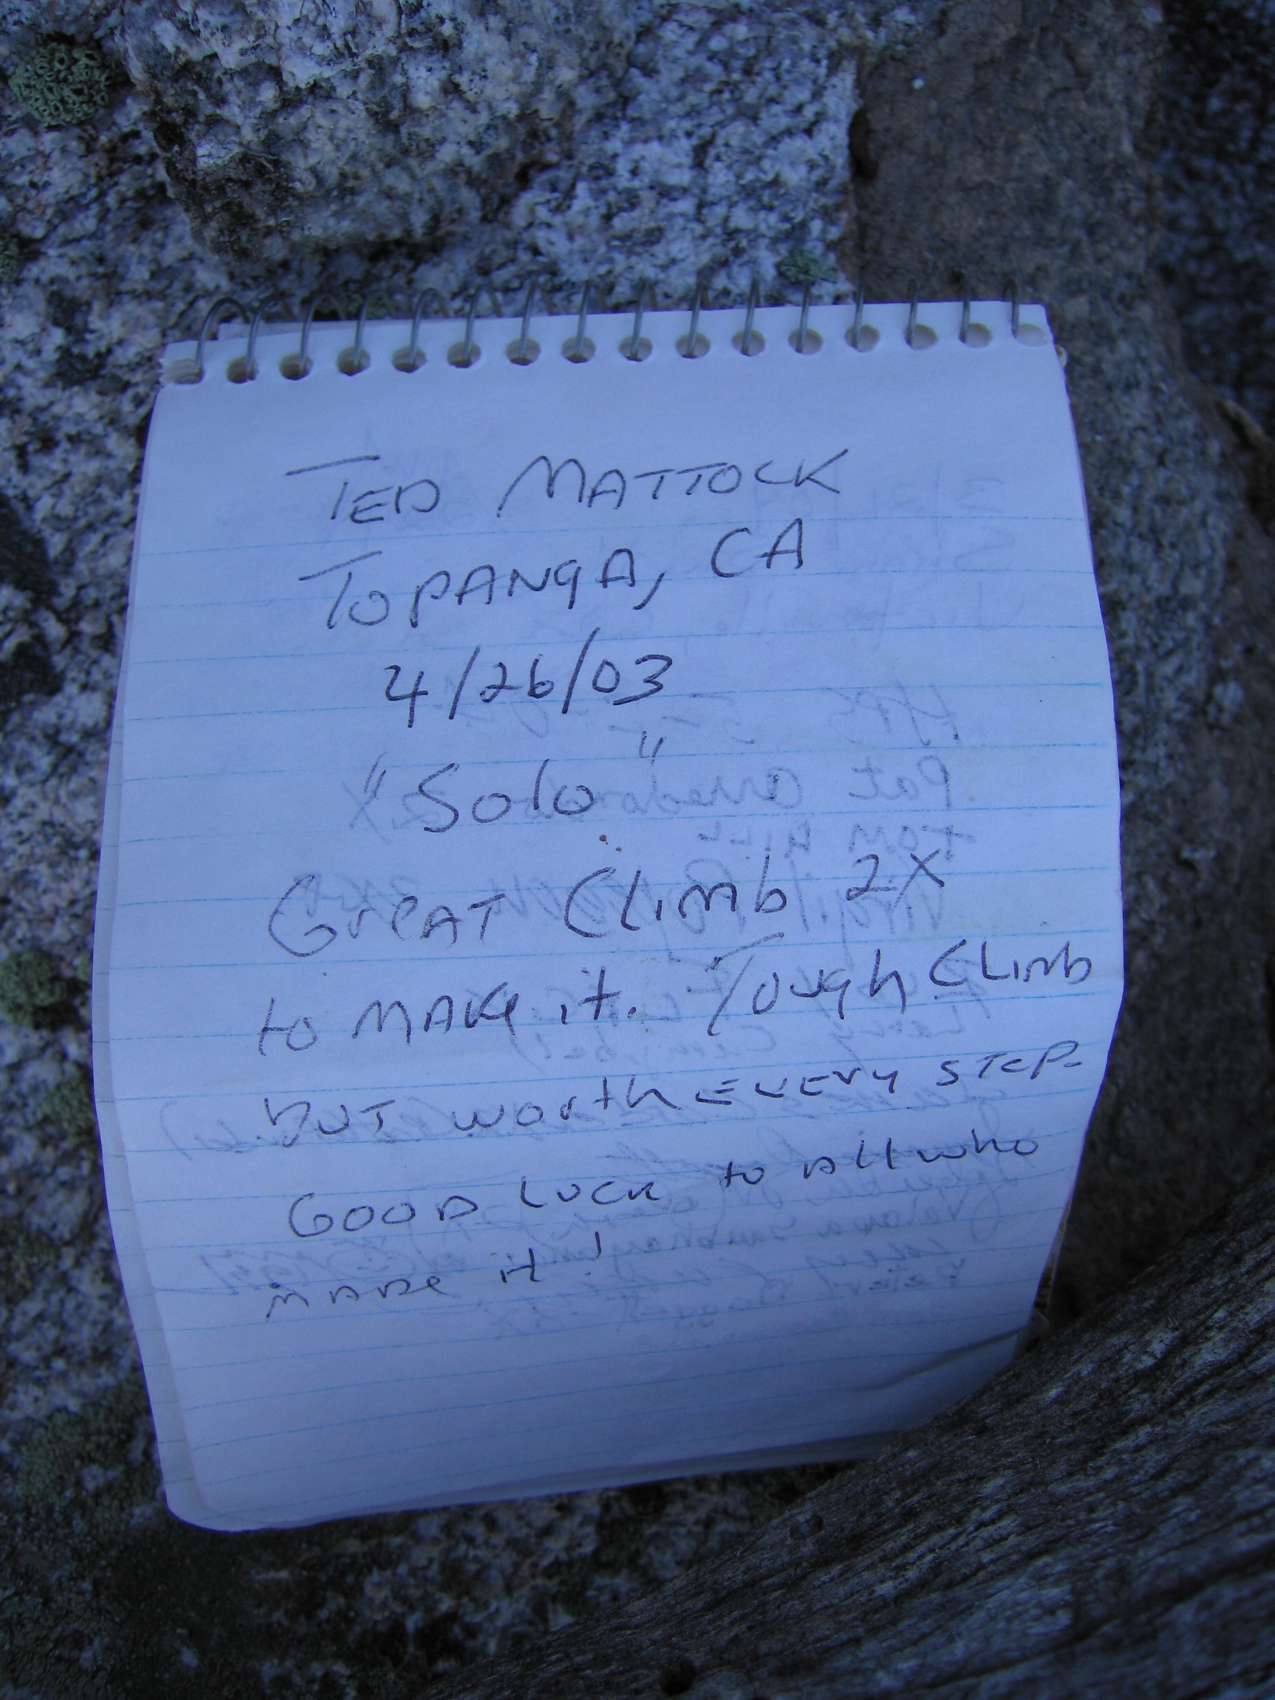 TED MATTOCK
TOPANGA, CA
4/26/03
"Solo"
GreAT Climb 2X
to MAKe it. Tough CLimb
bUT worth EVERY STEP.
GOOD LUCK to All who
MADe it!